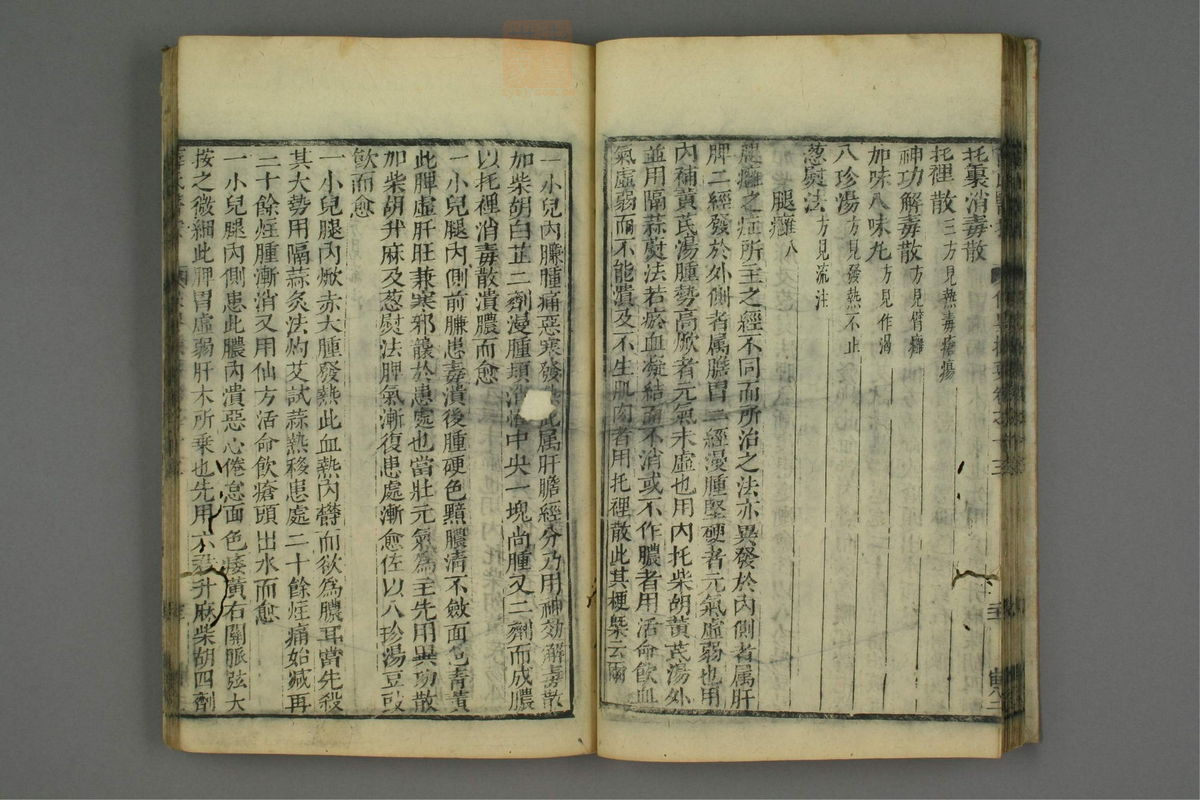 托裏消毒散
托裡散 三方見熱毒瘡瘍
神功解毒散 方見臂癰
加味八味丸 方見作渴
八珍湯 方見發熱不止
葱熨法 方見流注
腿癰八
腿癰之症所主之經不同而所治之法亦異發於內側者属肝
脾二經發於外側者属膽胃二經漫腫堅硬者元氣虛弱也用
內補黃芪湯腫勢高焮者元氣未虛也用內托柴胡黃芪湯外
並用隔蒜熨法若瘀血凝結而不消或不作膿者用活命飲血
氣虛弱而不能潰及不生肌肉者用托裡散此其梗槩云爾
一小兒內臁腫痛惡寒發 此属肝膽經分乃用神効解毒散
加柴胡白芷二劑漫腫頓消惟中央一塊尚腫又二劑而成膿
以托裡消毒散潰膿而愈
一小兒腿內側前臁患毒潰後腫硬色黯膿清不斂面色青黃
此脾虛肝旺兼寒邪襲於患處也當壯元氣為主先用異功散
加柴胡升麻及葱熨法脾氣漸復患處漸愈佐以八珍湯豆豉
飲而愈
一小兒腿內焮赤大腫發熱此血熱內欝而欲為膿耳當先殺
其大勢用隔蒜灸法灼艾試蒜熱移患處二十餘炷痛始减再
二十餘炷腫漸消又用仙方活命飲瘡頭出水而愈
一小兒腿內側患此膿內潰惡心倦怠面色痿黃右關脈弦大
按之微細此脾胃虛弱肝木所乘也先用六君升麻柴胡四劑